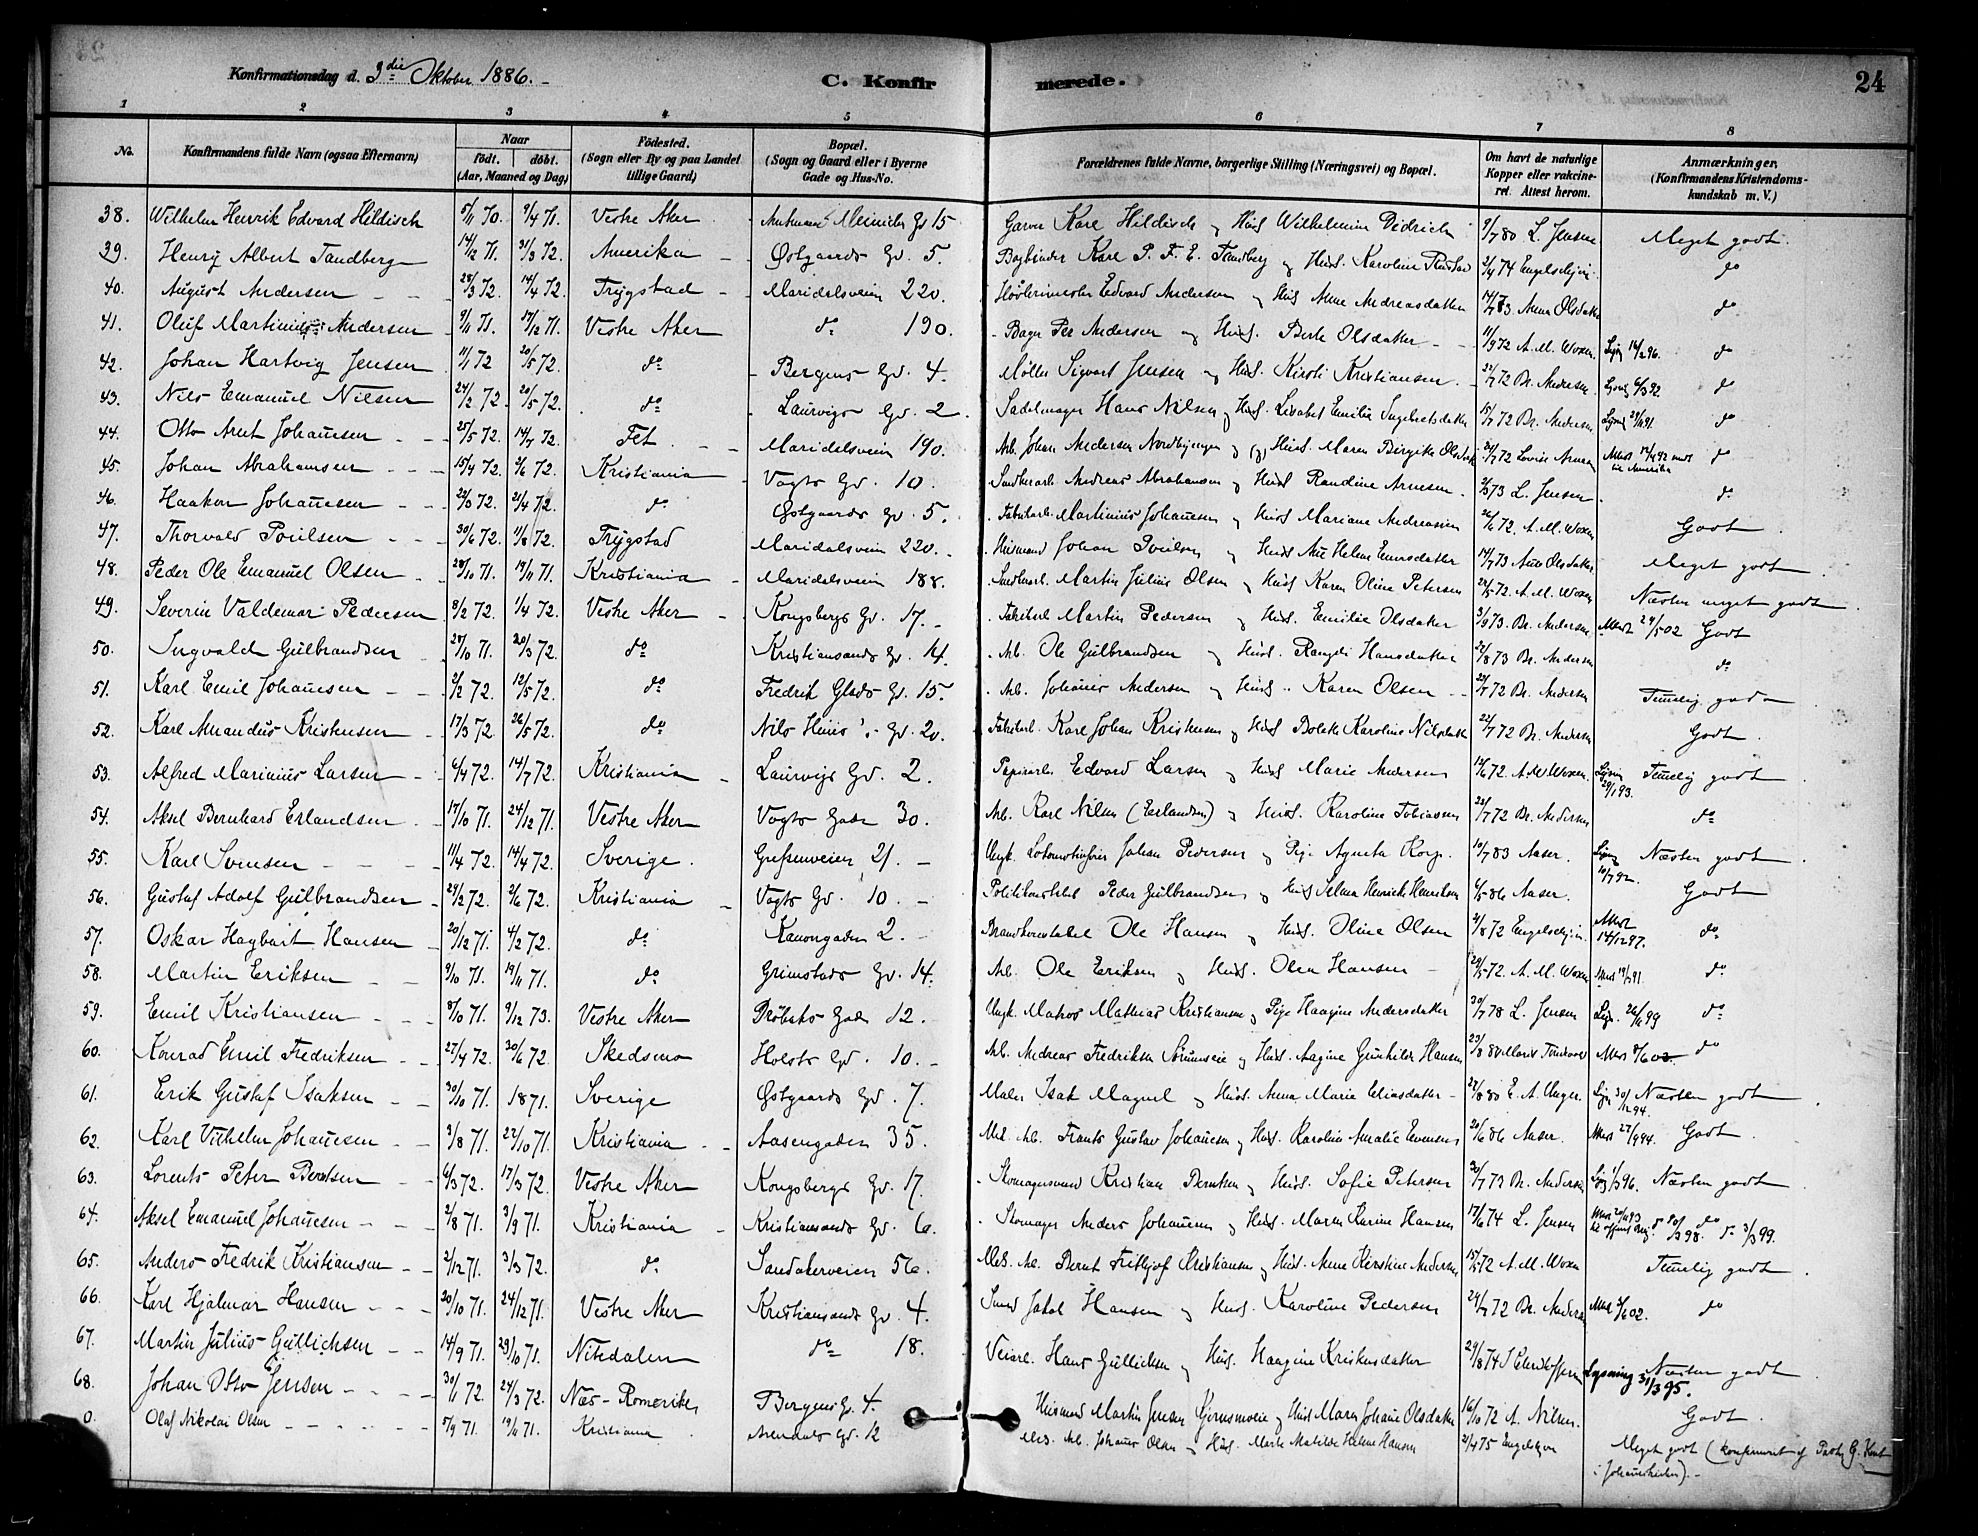 Konfirmationsdag d. 3die Oktober 1886.
C. Konfirmerede.
24
1 2 3 4 5 6 7 8
No. Konfirmandens fulde Navn (ogsaa Efternavn) Naar født. døbt. (Aar, Maaned og Dag) Fødested. (Sogn eller By og paa Landet tillige Gaard) Bopæl. (Sogn og Gaard eller i Byerne Gade og Hus-No. Forældrenes fulde Navne, borgerlige Stilling (Næringsvei) og Bopæl. Om havt de naturlige Kopper eller vakcineret. Attest herom. Anmærkninger, (Konfirmandens Kristendomskundskab m. V.)
38. Wilhelm Henrik Edvard Hildisch 5/11 70 9/4 71. Vestre Aker Amtmand Meinichs Gd 15 Garver Karl Hildisch og Hust Wilhelmine Didrich 9/7 80 L. Jensen Meget godt
39. Henry Albert Tandberg 14/12 71. 31/3 72. Amerika Østgaards Gd. 5. Bogbinder Karl P. F. E. Tandberg og Hust. Karoline 2/4 74 Engelschjøn do
40. August Andersen 28/3 72. 14/4 72. Trygstad Maridalsveien 220. Edvard Andersen og Hust Anne Andreasdatter 14/7 83. Anna Olsdatter do
41. Oluf Martinius Andersen 9/11 71. 17/12 71. Vestre Aker do 190. Bager Per Andersen og Hust. Berte Olsdatter 11/9 72 A. M. Woxen Lysn 14/2 96. do
42. Johan Hartvig Jensen 11/1 72 20/5 72. do Bergens Gd. 4. Møller Sigvart Jensen og Hust. Kirsti Kristiansen. 22/7 72 Br. Andersen Lysn 6/3 92. do
43. Nils Emanuel Nilsen 24/2 72. 20/5 72. do Laurvigs Gd. 2. Sadelmager Hans Nilsen og Hust. Lisabet Emilie Ingebretsdatter 15/7 72 Br. Andersen do
44. Otto Arnt Johansen 25/5 72. 14/7 72. Fet Maridalsveien 190. Arb. Johan Andersen Nordbyengen og Hust. Maren Birgitte 22/7 72 Lovise do
45. Johan Abrahamsen 15/4 72. 2/6 72. Kristiania Vogts Gd. 10. Andreas Abrahamsen og Hust Randine Arnesen. 2/3 73 L. Jensen do
46. Haakon Johansen 22/3 72. 21/4 72. do Østgaards Gd. 5. Fabrikarb. Martinius Johansen og Hust Mariane Andreasen 26/6 72. A. M. Woxen Godt
47. Thorvald Poulsen 30/6 72. 11/8 72. Trygstad Maridalsveien 220. Husmand Johan Poulsen og Hust Ane Helene 14/7 73 Anne Olsdatter Meget godt
48. Peder Ole Emanuel Olsen 28/10 71. 19/11 71. Kristiania Maridalsveien 188. Martin Julius Olsen og Hust Karen Oline Petersen 28/5 72. A. M. Woxen Næsten meget godt
49. Severin Valdemar Pedersen 8/2 72. 1/4 72. Vestre Aker Kongsbergs Gd. 17. Fabrikarb. Martin Pedersen og Hust. Emilie Olsdatter 3/9 73. Br. Andersen Attest 29/5 02 Godt
50. Ingvald Gulbrandsen 28/10 71. 20/3 72. do Kristiansands Gd. 14. Arb. Ole Gulbrandsen og Hust. Rangdi Hansdatter 22/8 73 Br. Andersen do
51. Karl Emil Johansen 2/2 72. 12/5 72. do Fredrik Glads Gd. 15. Arb. Johannes Andersen og Hust. Karen Olsen 22/7 72 Br. Andersen Temelig godt
52. Karl Amandus Kristensen 17/3 72 26/5 72. do Nils Huus's Gd. 20. Fabrikarb. Karl Johan Kristensen og Hust Bolette Karoline Nilsdatter 22/7 72 Br. Andersen Godt.
53. Alfred Marinius Larsen 6/4 72. 14/7 72. Kristiania Laurvigs Gd. 2. Papirarb. Edvard Larsen og Hust. Marie Andersen 14/6 72. A. M. Woxen. Lysn 29/1 93. Temelig godt
54. Aksel Bernhard Erlandsen 17/10 71. 24/12 71. Vestre Aker Vogts Gade 30. Arb. Karl Nilsen (Erlandsen) og Hust. Karoline Tobiassen 22/7 72 Br. Andersen do
55. Karl Svensen 11/4 72. 14/4 72. Sverige. Grefsenveien 21. Ungk. Lokomotivfører Johan Pedersen og Pige Agneta Korp. 10/7 83 Aaser. Lysn 10/7 92. Næsten godt
56. Gustaf Adolf Gulbrandsen 29/2 72. 2/6 72. Kristiania Vogts Gd. 10. Politikonstabel Peder Gulbrandsen og Hust Selma Henrikke Henriksen 4/5 86 Aaser. Godt
57. Oskar Hagbart Hansen 20/12 71. 4/2 72. do Kanongaden 2. Brandkonstabel Ole Hansen og Hust. Oline Olsen 21/8 72 Engelschjøn. Attest 14/12 97. do
58. Martin Eriksen 9/10 71. 19/11 71. do Grimstads Gd. 14. Arb. Ole Eriksen og Hust. Olea Hansen 29/5 72. A. M. Woxen do
59. Emil Kristiansen 8/10 71. 9/12 73. Vestre Aker Drøbaks Gade 12. Ungk. Matros Mathias Kristiansen og Pige Haagine Andersdatter 30/7 78 L. Jensen Lysn. 26/6 99 do
60. Konrad Emil Fredriksen 27/4 72. 30/6 72. Skedsmo Holsts Gd. 10. Arb. Andreas Fredriksen og Hust. Aagine Gunhilde Hansen 23/8 do
61. Erik Gustaf Isaksen 30/10 71. 1871. Sverige Østgaards Gd. 7. Maler Isak Magnel og Hust. Anna Marie Eliasdatter 27/8 80 E. A. Unger Lysn 30/12 94. Næsten godt
62. Karl Vilhelm Johansen 3/8 71. 22/10 71. Kristiania Aasengaden 35. Mek. Arb. Frants Gustav Johansen og Hust. Karoline Amalie Evensen 20/6 86 Aaser. Attest 27/9 94. Godt
63. Lorents Peter Berntsen 6/3 72. 17/3 72. Vestre Aker Kongsbergs Gd. 17. Skomagersvend Kristian Berntsen og Hust. Sofie Petersen 20/7 73 Br. Andersen Lysn 1/3 96. Næsten godt
64. Aksel Emanuel Johansen 2/8 71. 3/9 71. Kristiania Kristiansands Gd. 6. Skomager Anders Johansen og Hust. Maren Karine Hansen 17/6 74 L. Jensen do
65. Anders Fredrik Kristiansen 2/12 71. 31/3 72. do Sandakerveien 56. Mek. Arb. Bernt Fritjof Kristiansen og Hust. Anne Kirstine Andersen 15/5 72 A. M. Woxen Temelig godt
66. Karl Hjalmar Hansen 20/10 71. 24/12 71. Vestre Aker Kristiansands Gd. 4. Jakob Hansen og Hust. Karoline Pedersen 24/7 72 Br. Andersen do
67. Martin Julius Gullichsen 14/9 71. 29/10 71. Nitedalen do 18. Veiarb. Hans Gullichsen og Hust. Haagine Kristensdatter 29/8 74 Lysning 31/3 95. Næsten godt
68. Johan Otto Jensen 30/1 72. 24/3 72. Næs - Romerike Bergens G. 4. Husmand Martin Jensen og Hust Maren Johanne Olsdatter 16/10 72 A. Nilsen. Godt.
0. Olaf Nikolai Olsen 5/9 71. 19/11 71. Kristiania Arendals Gd. 12 Mek. Arb. Johannes Olsen og Hust. Marte Matilde Helene Hansen 2/4 75 Engelschjøn Meget godt (konfirmeret af Pastor G. i Johanneskirken).